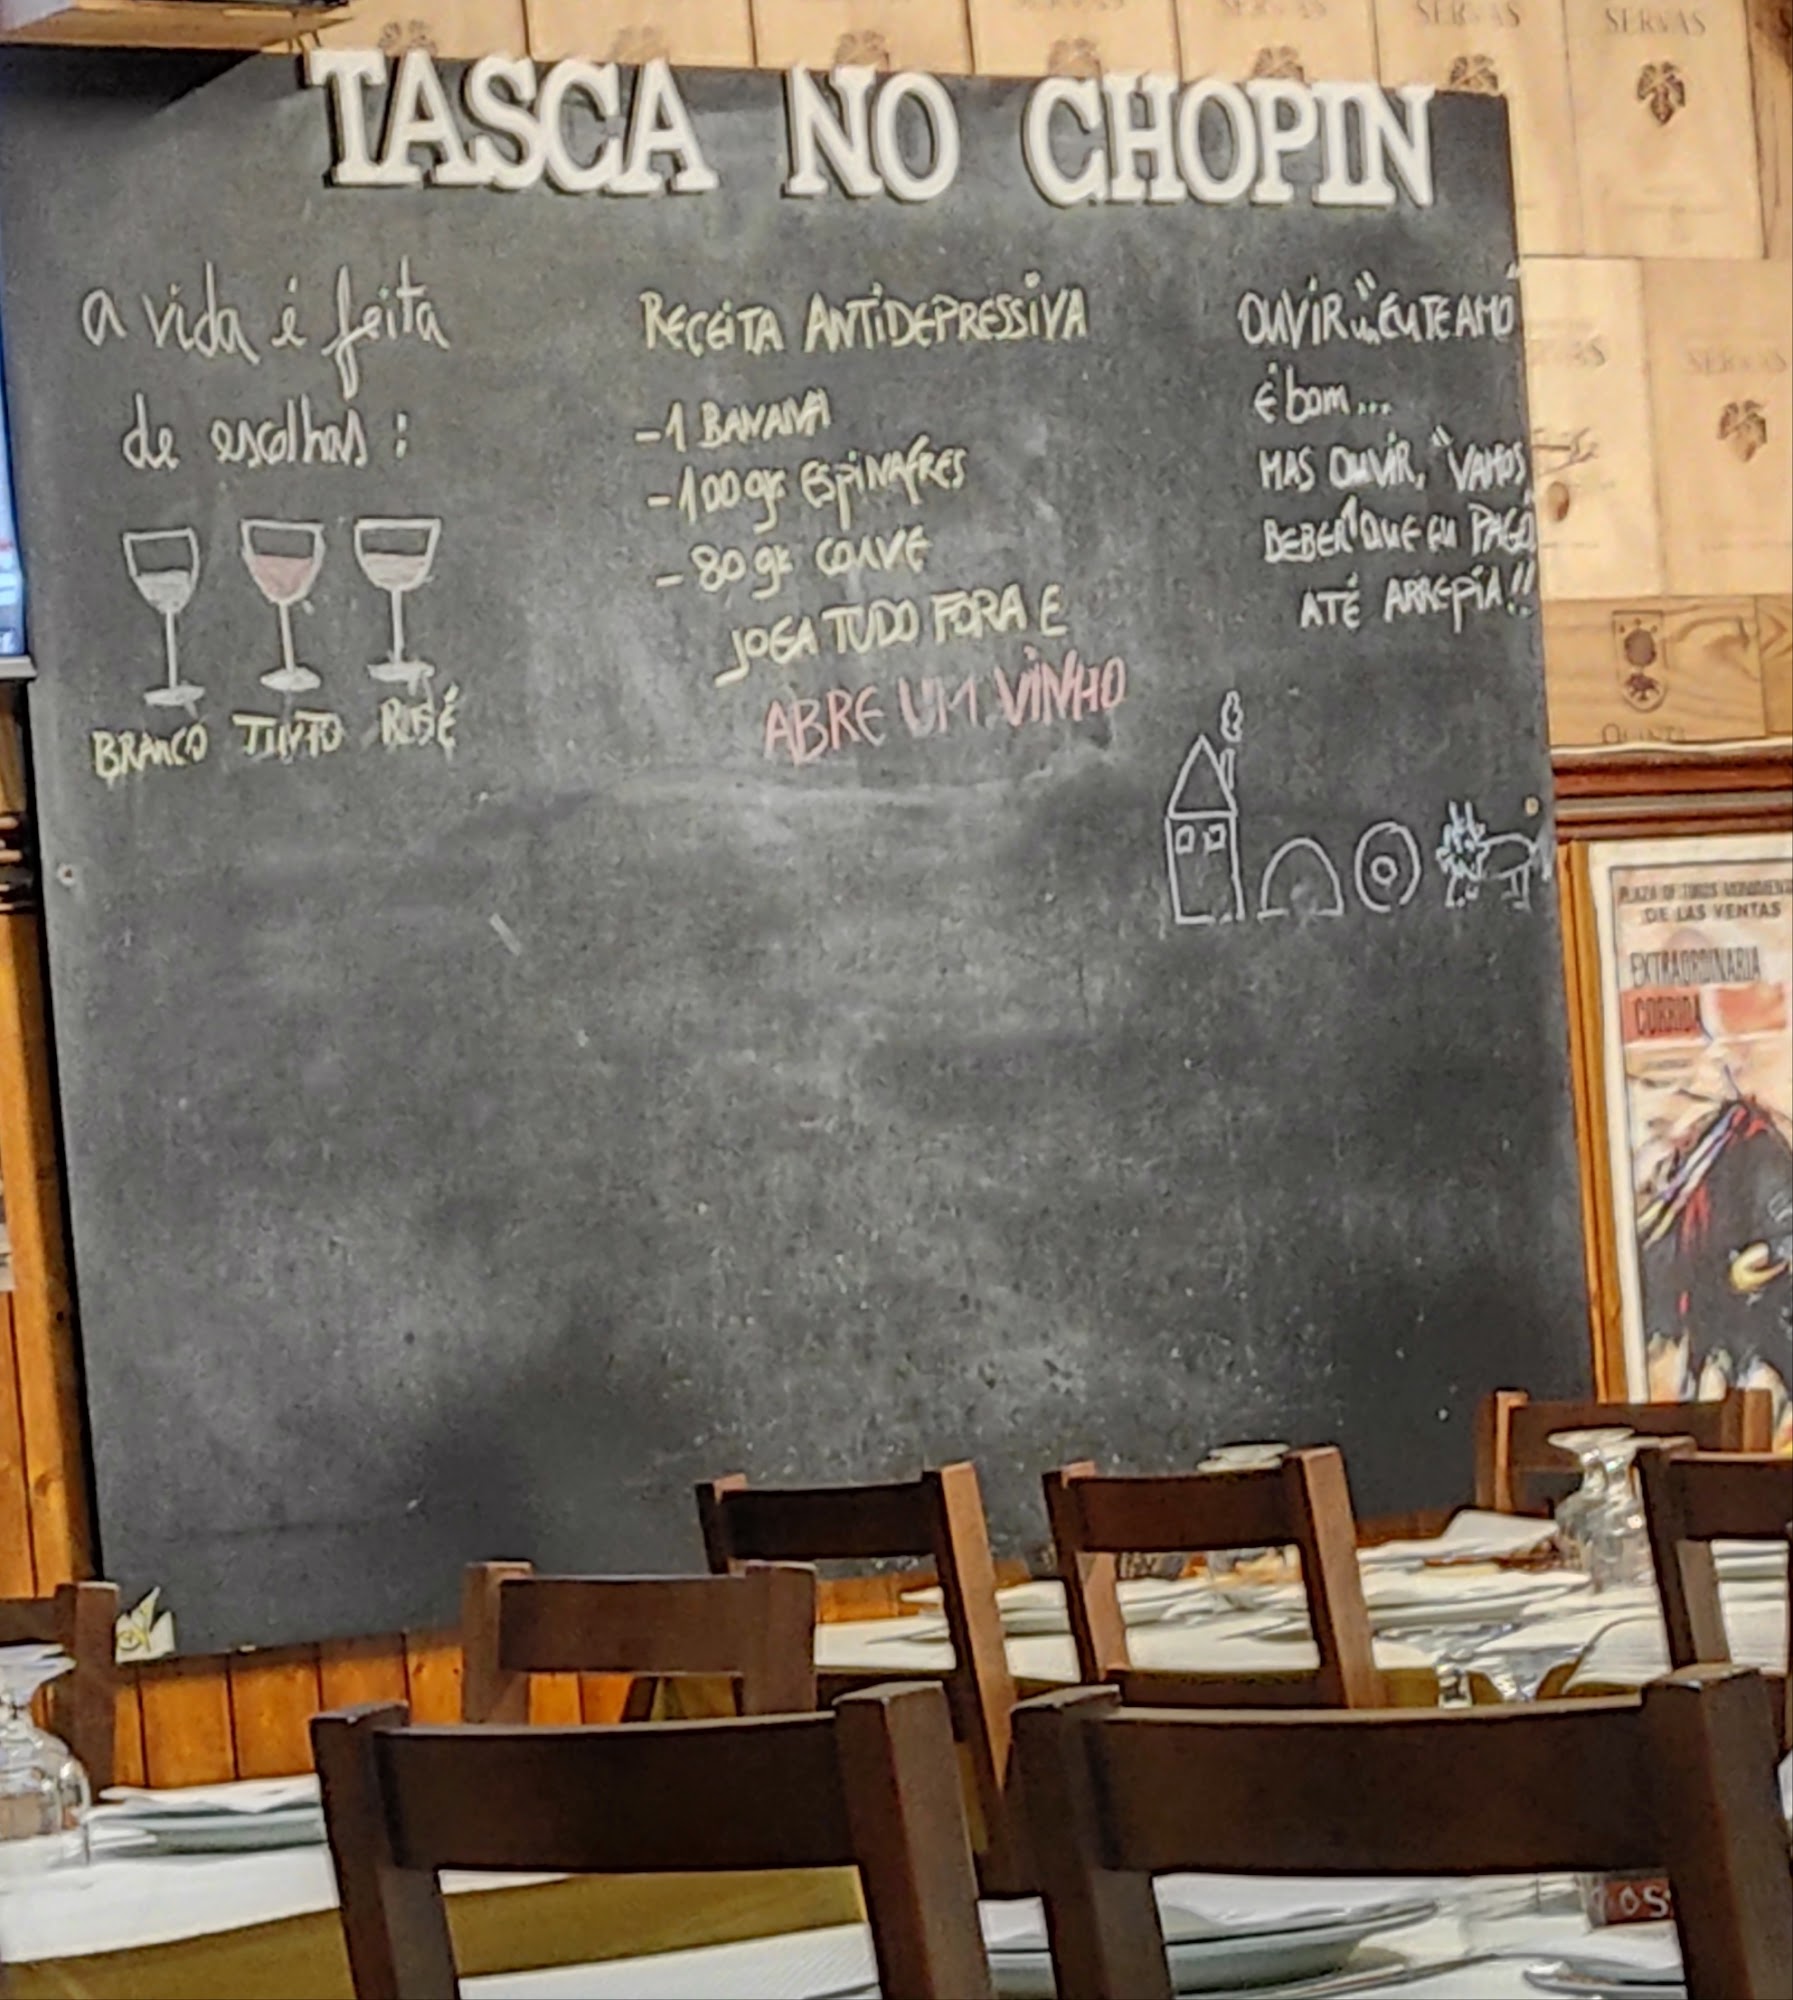 TASCA NO CHOPIN
a vida é feita
de escolhas:
BRANCO TINTO ROSÉ
RECEITA ANTIDEPRESSIVA
-1 BANANA
-100gr ESPINAFRES
-80gr COUVE
JOGA TUDO FORA E
ABRE UM VINHO
OUVIR "EU TE AMO"
É bom...
MAS OUVIR, "VAMOS
BEBER" QUE EU PAGO
ATÉ ARREPIA!!
SERVAS
SERVAS
SERVAS
PLAZA DE TOROS MONUMENTAL
DE LAS VENTAS
EXTRAORDINARIA
CORRIDA